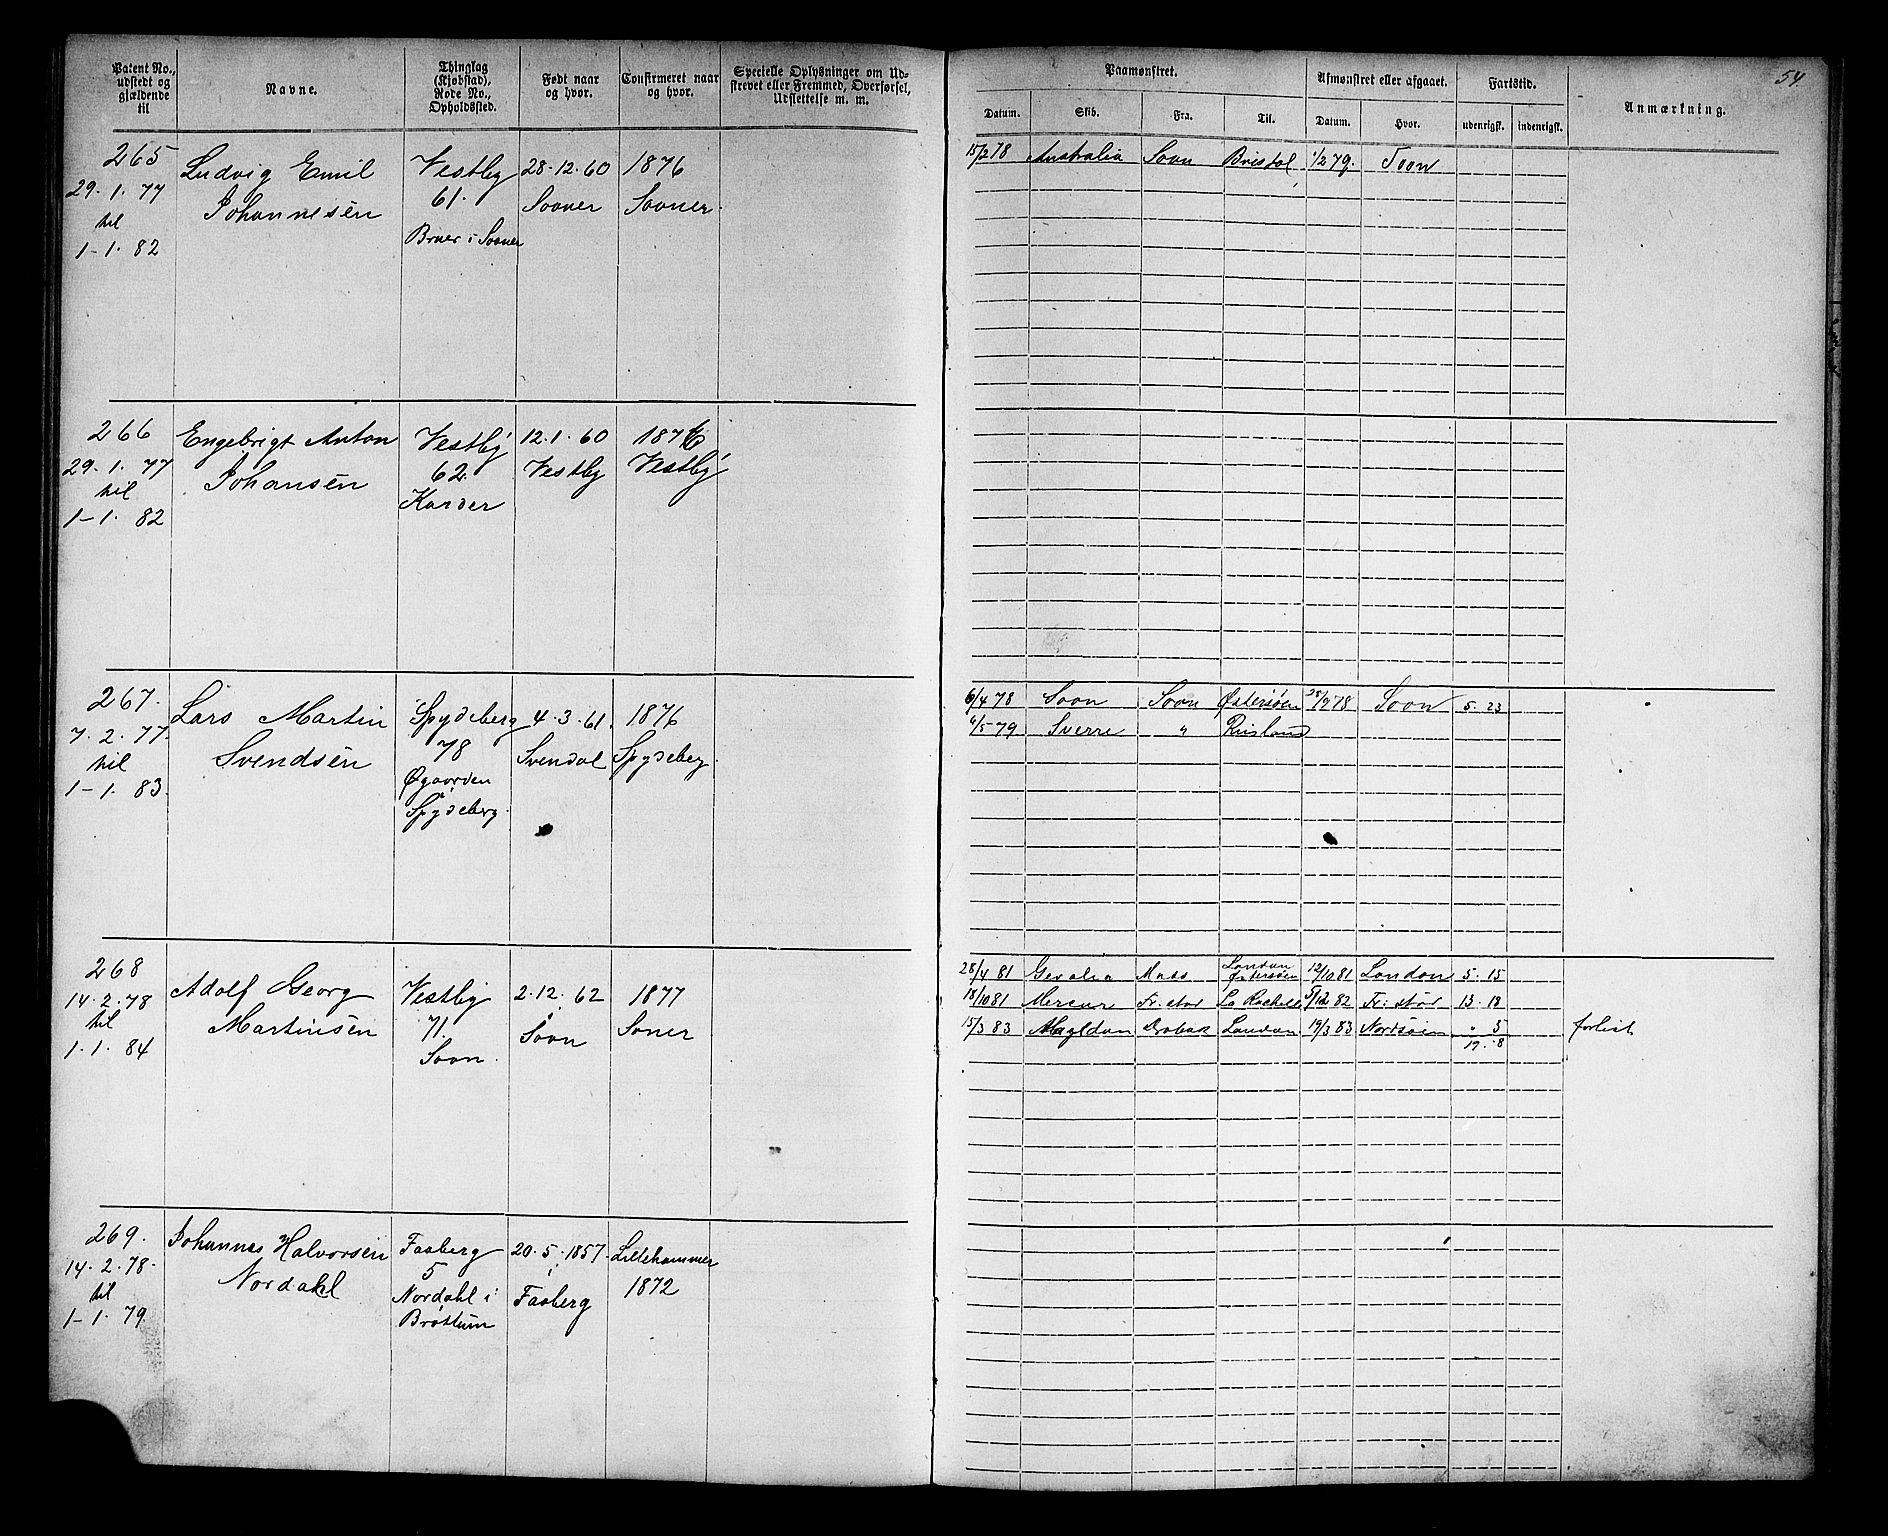 54
Patent No., udstedt og gjældende til
Navne.
Thinglag (Kjøbstad), Rode No., Opholdssted.
Født naar og hvor.
Confirmeret naar og hvor.
Specielle Oplysninger om Udskrevet eller Fremmed, Overførsel, Udslettelse m. m.
Paamønstret.
Afmønstret eller afgaaet.
Fartstid.
Anmærkning.
Datum. Skib. Fra. Til. Datum. Hvor. udenrigsk. indenrigsk.
265
29. 1. 77
til
1-1. 82
Ludvig Emil
Johannesen
Vestby
61.
i Sooner
28-12. 60
Sooner
1876
Sooner.
15/2 78 Australia Soon Bristol 1/2 79. Soon
266
29. 1. 77
til
1-1. 82
Engebrigt Anton
Johansen
Vestby
62.
12. 1. 60
Vestby
1876
Vestby
267.
7. 2. 77.
til
1-1. 83.
Lars Martin
Svendsen
Spydeberg
78
Øgaarden
i
Spydeberg.
4. 3. 61.
Svendal
1876
Spydeberg
6/4 78 Soon Soon Østersøen 78 Soon 5. 23
6/5 79 Sverre " Rusland
268
14. 2. 78
til
1. 1. 84
Adolf Georg
Martinsen
Vestby
71.
Soon.
2. 12. 62
i
Soon
1877
Soner
28/4 81 Gevalia Moss London Østersøen 12/10 81 London 5. 15
18/10 81 Mercur Fr: stad La Rochelle 82 Fr: stad 13. 18
15/3 83 Drøbak London 19/3 83 Nordsøen " 5 forlist
19. 8
269.
14. 2. 78.
til
1-1. 79.
Johannes Halvorsen
Nordahl
Faaberg
5
Nordahl i
Brøttum
20. 5. 1857.
i
Faaberg
Lillehammer
1872